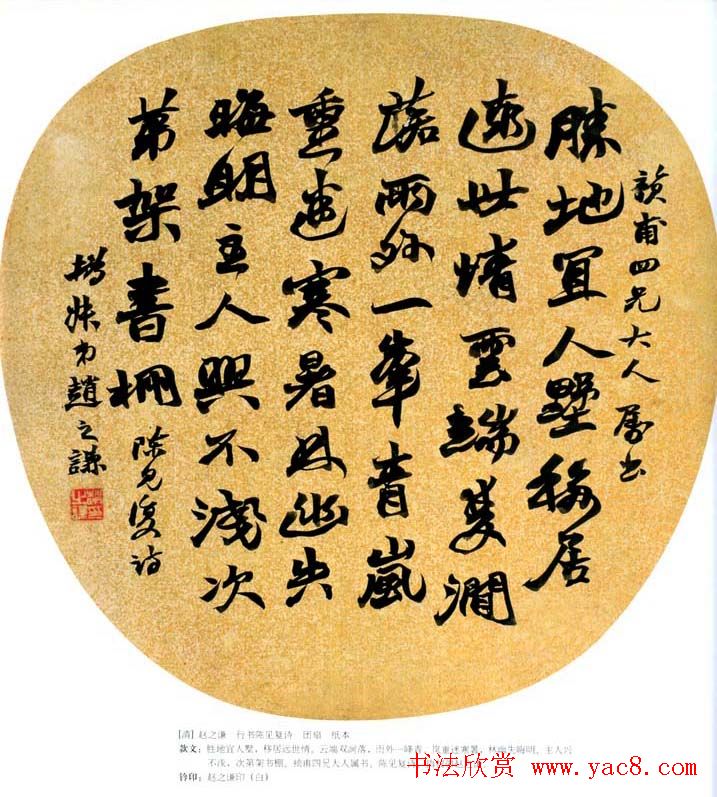 甫四兄大人属書
勝地宜人墅移居
遠世情雲端雙澗
落雨外一峯青嵐
重迷寒暑林幽失
晦明主人興不淺次
弟架書棚 陳見復詩
撝叔弟趙之謙
[清] 赵之谦 行书陈见复诗 团扇 纸本
款文：胜地宜人墅，移居远世情。云端双涧落，雨外一峰青。岚重迷寒暑，林幽失晦明。主人兴
不浅，次第架书棚。甫四兄大人属书。陈见复
钤印：赵之谦印（白）
书法欣赏 www.yac8.com